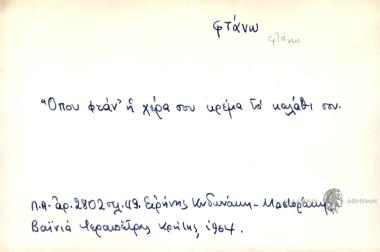 φτάνω
φτάνω
"Όπου φτάν' ἡ χέρα σου κρέμα τό καλάθι σου.
Λ.Α. ἀρ. 2802 σελ. 49. Εἰρήνης Κυδωνάκη - Μαστοράκη
Βαϊνιά Ἱεραπέτρης Κρήτης, 1964.
ΑΘΗΝΩΝ